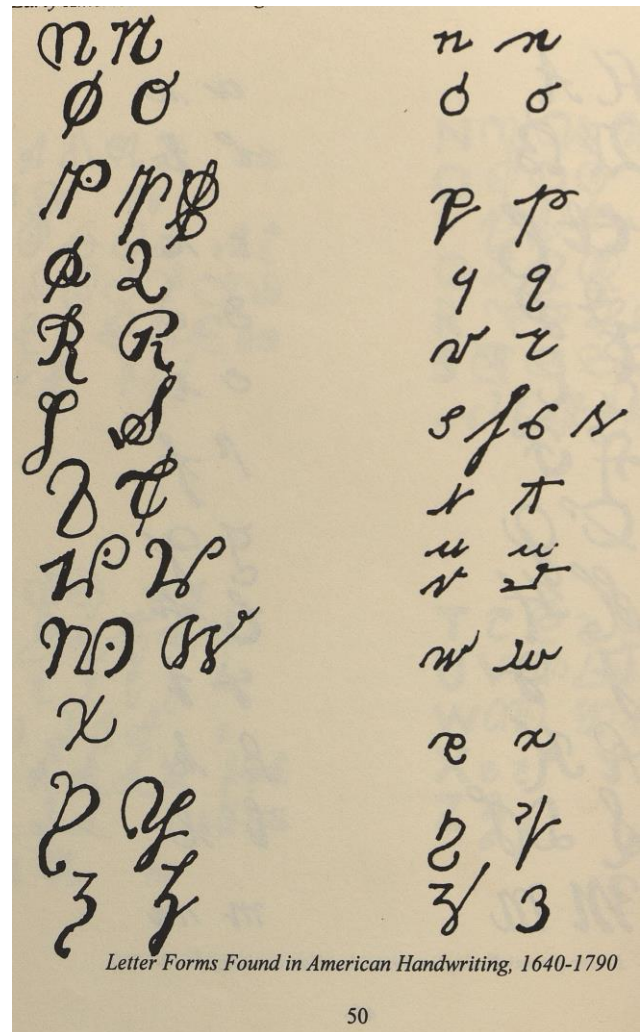 N N n n
O O o o
P P P p p
Q Q q q
R R r r
S S s s s s
T T t t
u u
V V v v
W W w w
X x x
Y Y y y
Z Z z z
Letter Forms Found in American Handwriting, 1640-1790
50